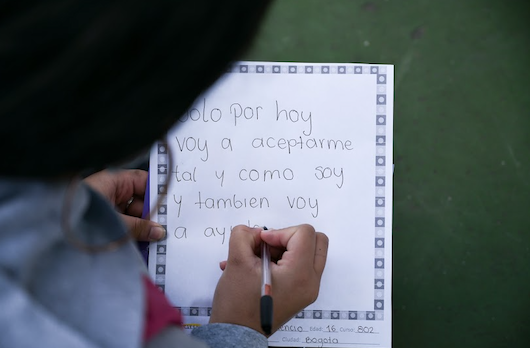 Solo por hoy
voy a aceptarme
tal y como soy
y tambien voy
a
Edad: 16 Curso: 802
Ciudad Bogota